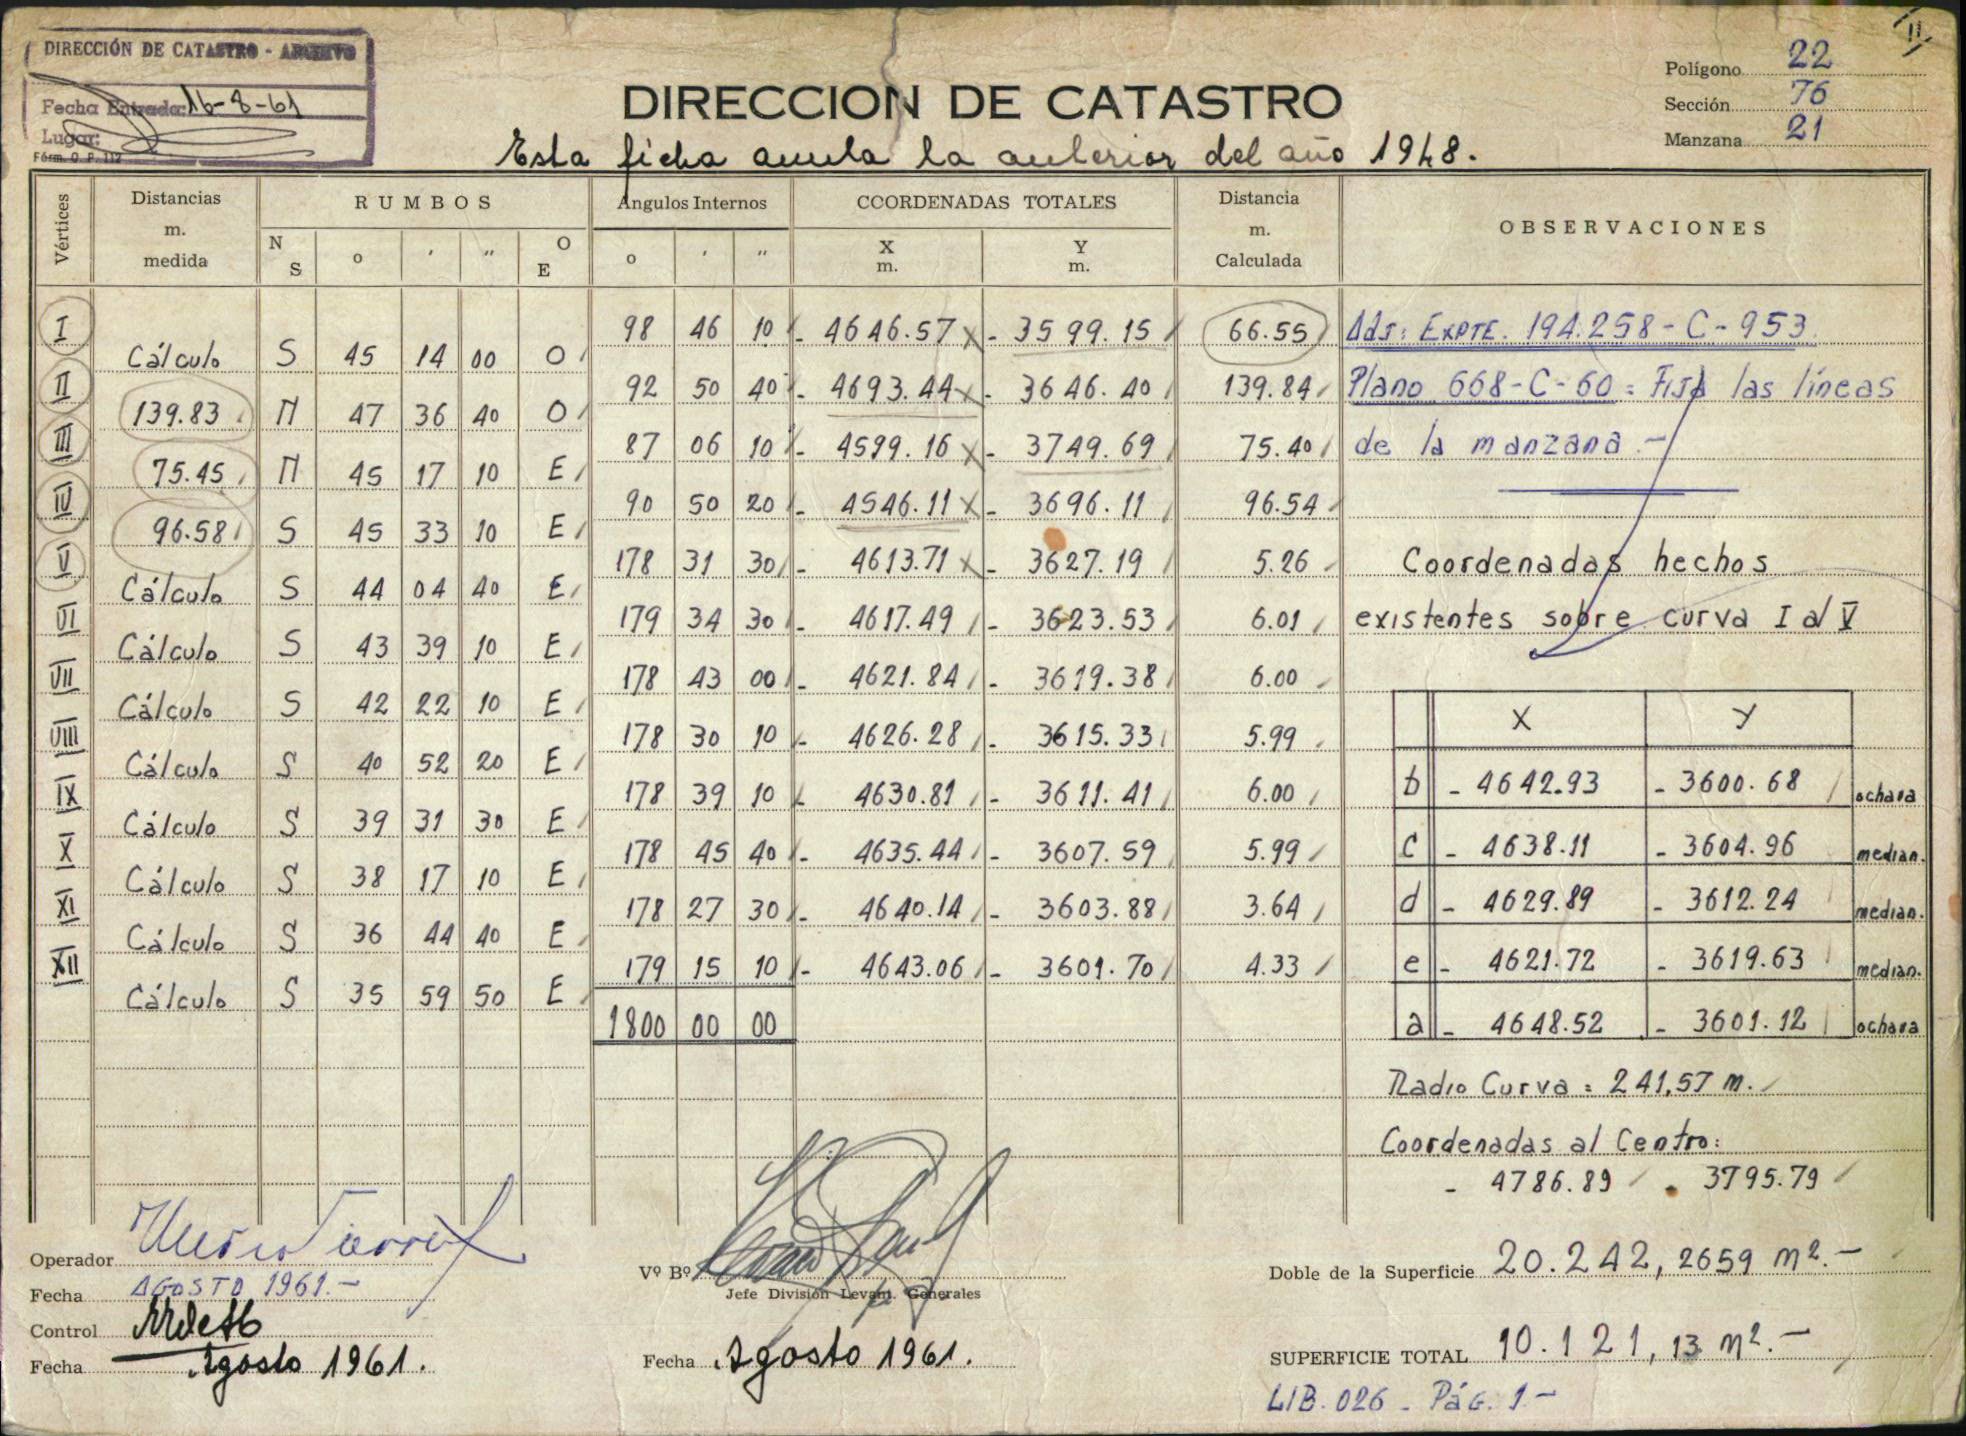 DIRECCIÓN DE CATASTRO - ARCHIVO
Fecha Entrada: 16-8-61
Lugar:
Fórm. O. P. 112
II
DIRECCION DE CATASTRO
Esta ficha anula la anterior del año 1948.
Polígono 22
Sección 76
Manzana 21
Vértices Distancias m. medida RUMBOS Angulos Internos COORDENADAS TOTALES Distancia m. Calculada OBSERVACIONES
N S o ' '' O E o ' '' X m. Y m.
I 98 46 10 - 4646.57 - 3599.15 66.55
Cálculo S 45 14 00 O
II 92 50 40 - 4693.44 - 3646.40 139.84
139.83 N 47 36 40 O
III 87 06 10 - 4599.16 - 3749.69 75.40
75.45 N 45 17 10 E
IV 90 50 20 - 4546.11 - 3696.11 96.54
96.58 S 45 33 10 E
V 178 31 30 - 4613.71 - 3627.19 5.26
Cálculo S 44 04 40 E
VI 179 34 30 - 4617.49 - 3623.53 6.01
Cálculo S 43 39 10 E
VII 178 43 00 - 4621.84 - 3619.38 6.00
Cálculo S 42 22 10 E
VIII 178 30 10 - 4626.28 - 3615.33 5.99
Cálculo S 40 52 20 E
IX 178 39 10 - 4630.81 - 3611.41 6.00
Cálculo S 39 31 30 E
X 178 45 40 - 4635.44 - 3607.59 5.99
Cálculo S 38 17 10 E
XI 178 27 30 - 4640.14 - 3603.88 3.64
Cálculo S 36 44 40 E
XII 179 15 10 - 4643.06 - 3601.70 4.33
Cálculo S 35 59 50 E
1800 00 00
Adj: EXPTE. 194.258-C-953
Plano 668-C-60 = Fija las líneas
de la manzana.-
Coordenadas hechos
existentes sobre curva I al V
X Y
b - 4642.93 - 3600.68 ochava
c - 4638.11 - 3604.96 median.
d - 4629.89 - 3612.24 median.
e - 4621.72 - 3619.63 median.
a - 4648.52 - 3601.12 ochava
Radio Curva = 241,57 m.
Coordenadas al Centro:
- 4786.89 - 3795.79
Operador
Fecha AGOSTO 1961.-
Control
Fecha Agosto 1961.
Vº Bº
Jefe División Levant. Generales
Fecha Agosto 1961.
Doble de la Superficie 20.242,2659 m².-
SUPERFICIE TOTAL 10.121,13 m².-
LIB. 026 - PÁG. 1-